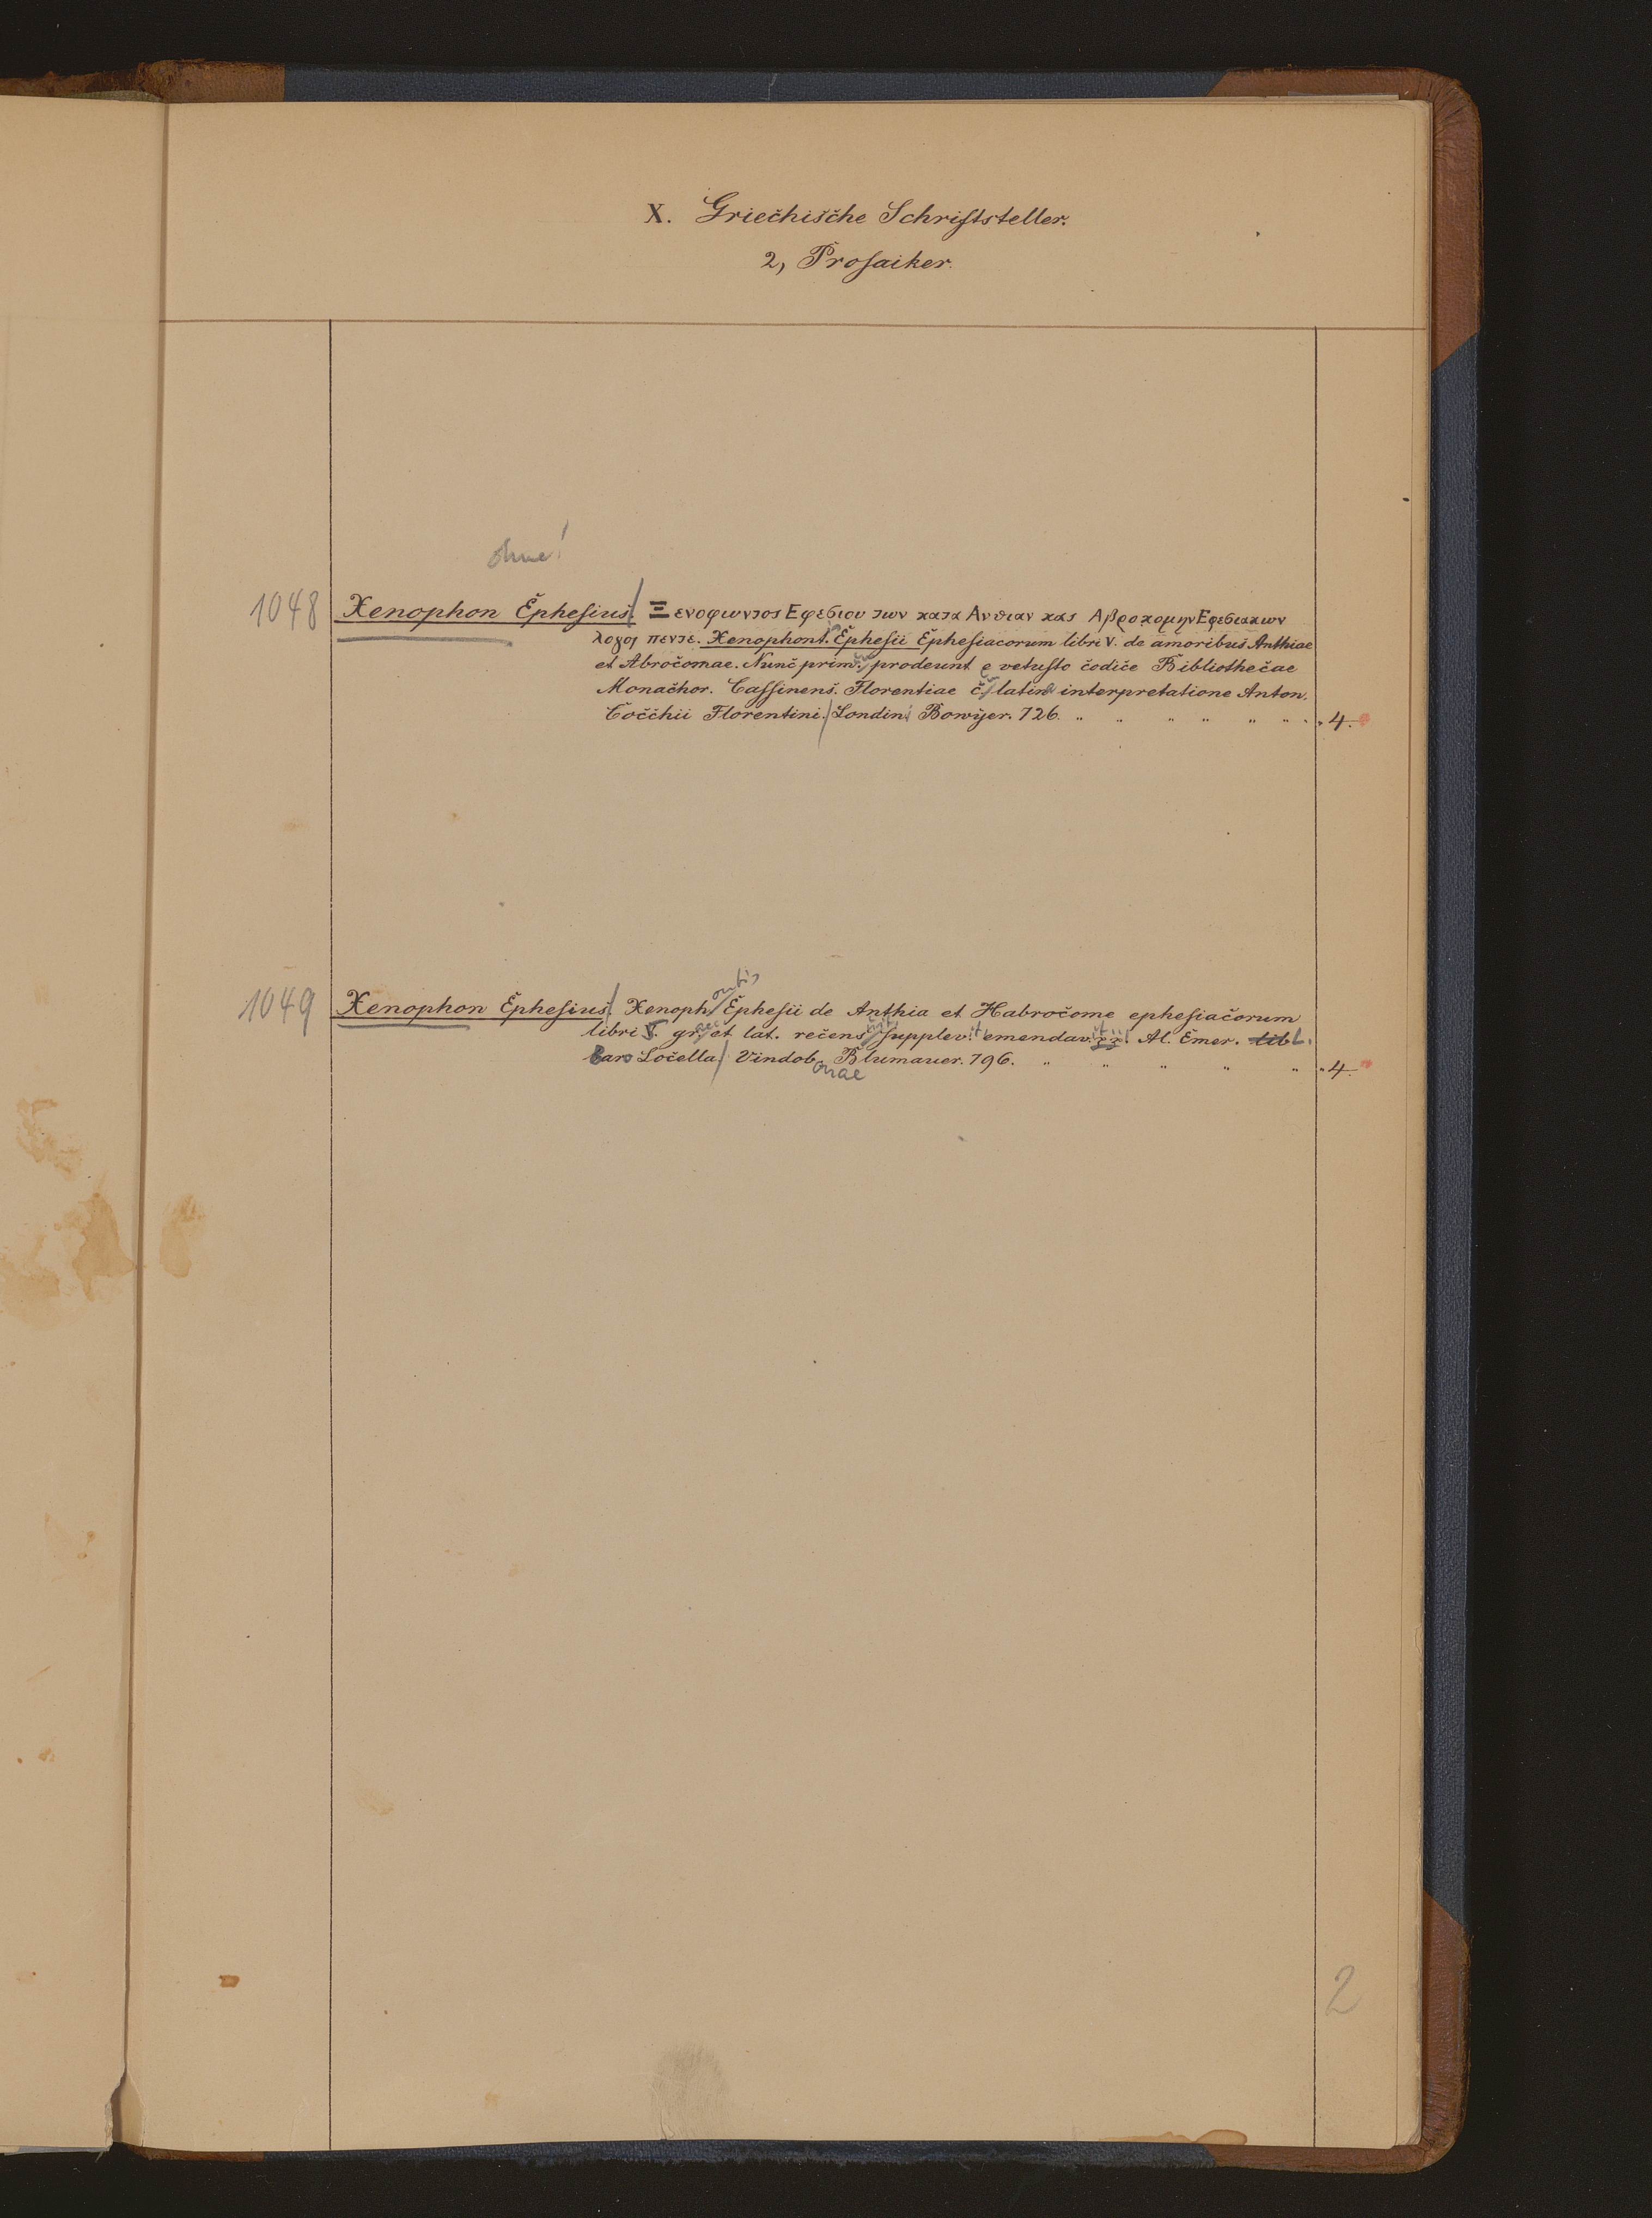 X. Griechische Schriftsteller.
2, Prosaiker.
ohne!
1048 Xenophon Ephesius. Ξενοφωντος Εφεσιου των κατα Ανθιαν και Αβροκομην Εφεσιακων
λογοι πεντε. Xenophontis Ephesii Ephesiacorum libri V. de amoribus Anthiae
et Abrocomae. Nunc primum prodeunt e vetusto codice Bibliothecae
Monachor. Cassinens. Florentiae cum latina interpretatione Anton.
Cocchii Florentini. Londini Bowyer. 726. " " " " " " " 4.
1049 Xenophon Ephesius. Xenophontis Ephesii de Anthia et Habrocome ephesiacorum
libri V. graec et lat. recensuit supplevit emendavit Al. Emer. lib L.
Baro Locella. Vindobonae Blumauer. 796. " " " " " " 4.
2